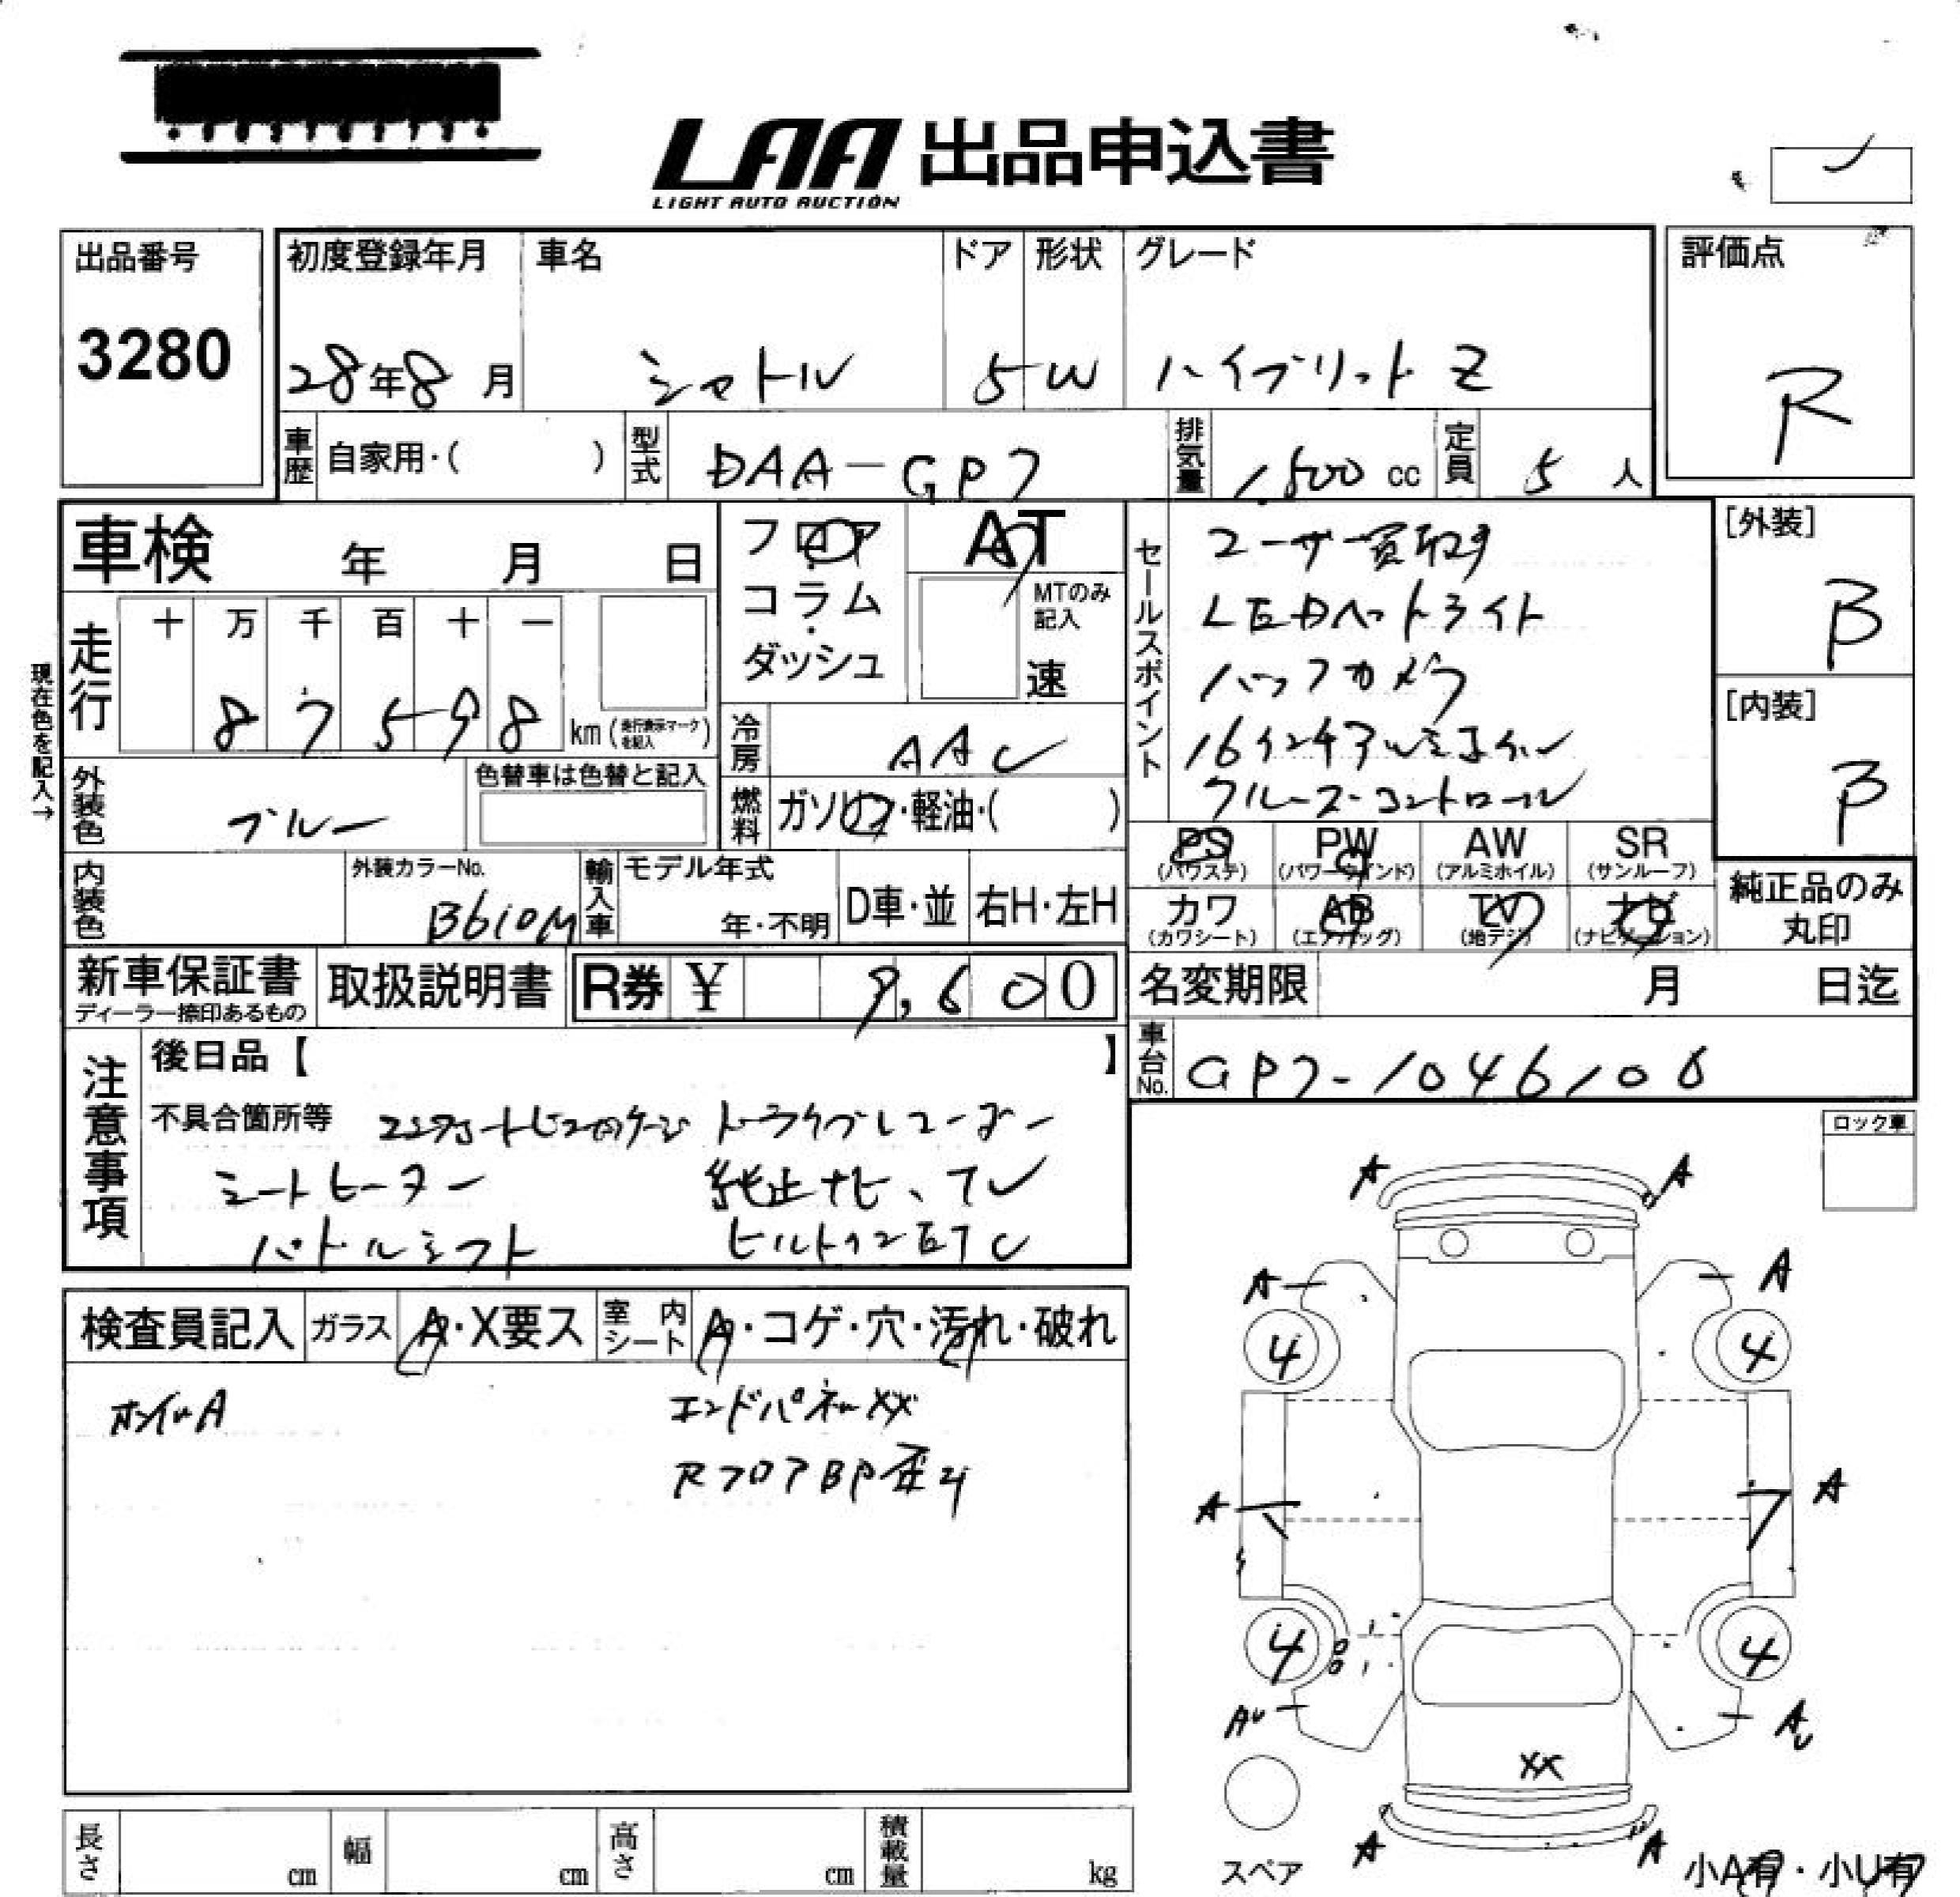 LAA 出品申込書
LIGHT AUTO AUCTION
出品番号
3280
初度登録年月
28年8月
車名
シャトル
ドア
5
形状
W
グレード
ハイブリット Z
評価点
R
車歴
自家用・( )
型式
DAA-GP7
排気量
1,500 cc
定員
5 人
車検 年 月 日
フロア
・
コラム
・
ダッシュ
AT
MTのみ
記入
速
セールスポイント
ユーザー買取り
LEDヘットライト
バックカメラ
16インチアルミホイル
クルーズコントロール
[外装]
B
[内装]
B
現在色を記入→
走行
十 万 千 百 十 一
8 7 5 9 8
km (走行表示マークを記入)
冷房
AAC
外装色
ブルー
色替車は色替と記入
燃料
ガソリン・軽油・( )
PS
(パワステ)
PW
(パワーウインド)
AW
(アルミホイル)
SR
(サンルーフ)
内装色
外装カラーNo.
B610M
輸入車
モデル年式
年・不明
D車・並
右H・左H
カワ
(カワシート)
AB
(エアバッグ)
TV
(地デジ)
ナビ
(ナビゲーション)
純正品のみ
丸印
新車保証書
ディーラー捺印あるもの
取扱説明書
R券 ¥ 9,600
名変期限 月 日迄
注意事項
後日品【 】
車台No.
GP7-1046106
不具合箇所等
ドライブレコーダー
シートヒーター 純正ナビ、TV
パドルシフト ビルトインETC
ロック車
検査員記入
ガラス
A・X要ス
室内シート
A・コゲ・穴・汚れ・破れ
ホイルA
エンドパネルXX
RフロアBP歪み
A A
A A
4 4
A A
4 4
AU AU
XX
A A
スペア
小A有・小U有
長さ cm
幅 cm
高さ cm
積載量 kg